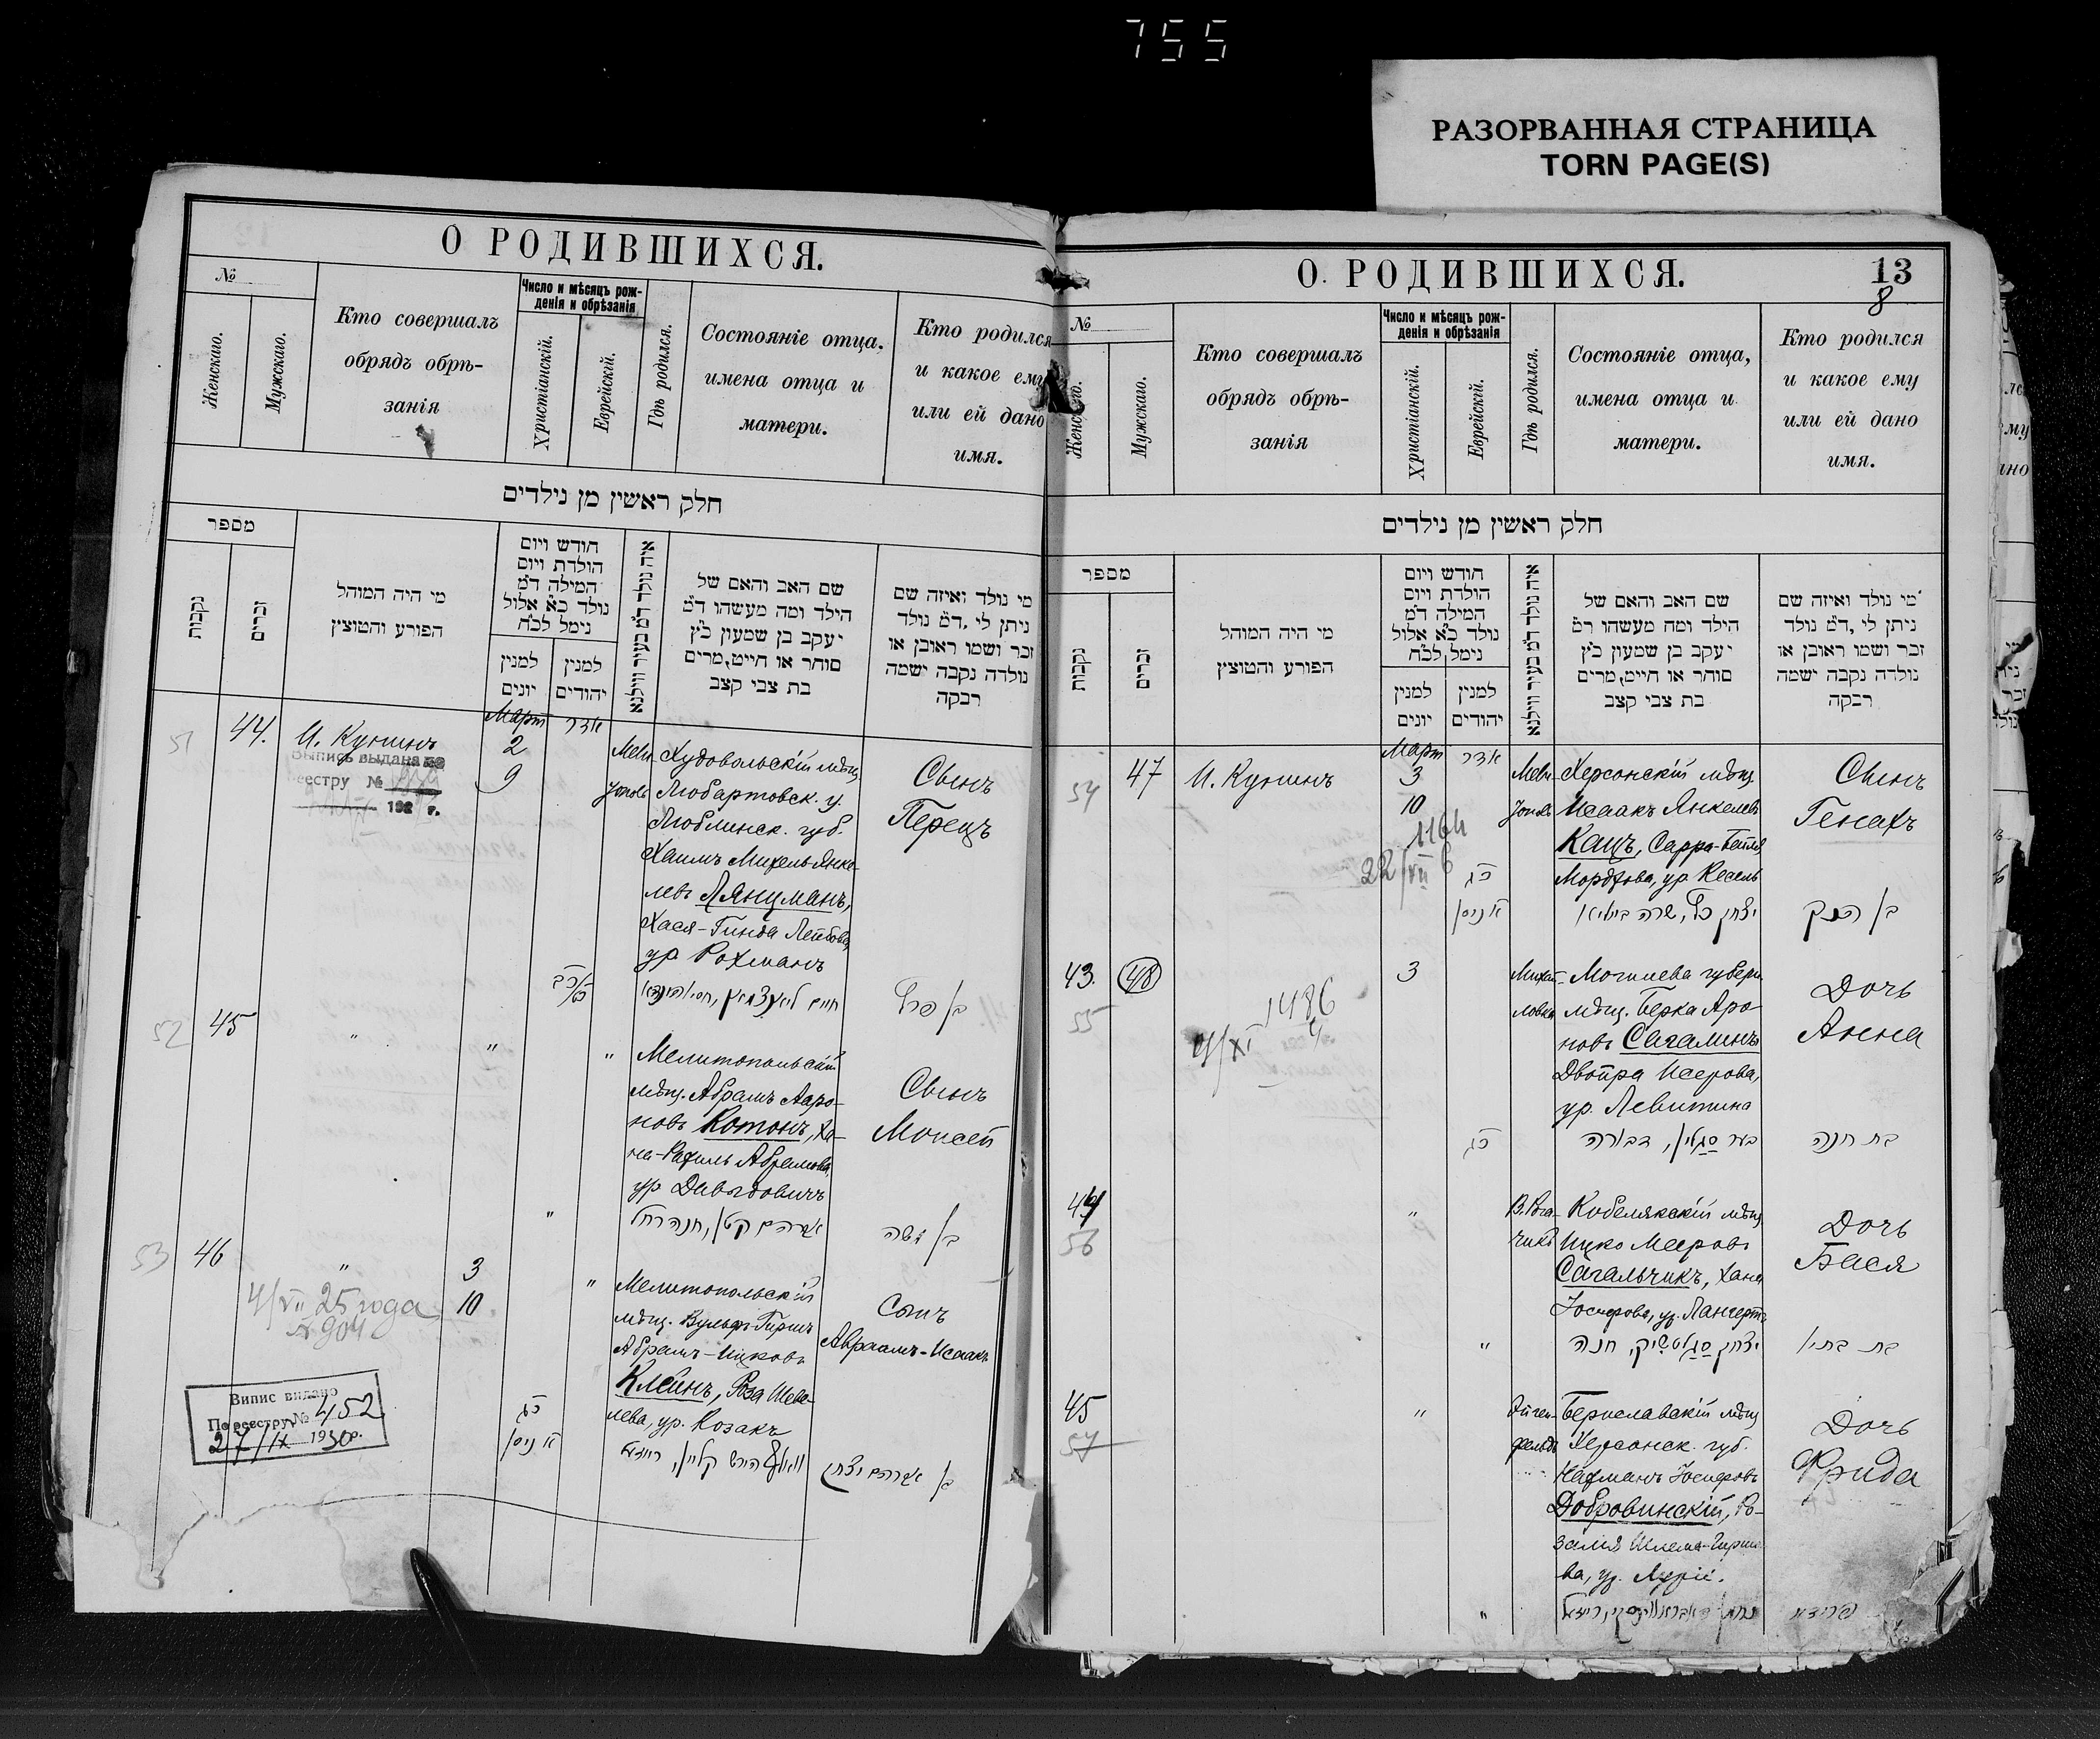 755
РАЗОРВАННАЯ СТРАНИЦА
TORN PAGE(S)
О РОДИВШИХСЯ.
№
Женскаго.
Мужскаго.
Кто совершалъ
обрядъ обрѣ-
занія
Число и мѣсяцъ рож-
денія и обрѣзанія
Христіанскій.
Еврейскій.
Гдѣ родился.
Состояніе отца.
имена отца и
матери.
Кто родился
и какое ему
или ей дано
имя.
חלק ראשין מן נילדים
מספר
נקבות
זכרים
מי היה המוהל
הפורע והטוצץ
חודש ויום
הולדת ויום
המילה ד"מ
נולד כ"א אלול
נימל לכ"ח
למנין
יונים
למנין
יהודים
איה נולד ד"מ בעיר ווילנא
שם האב והאם של
הילד ומה מעשהו ד"מ
יעקב בן שמעון כ"ץ
סוחר או חייט,מרים
בת צבי קצב
מי נולד ואיזה שם
ניתן לי ,ד"מ נולד
זכר ושמו ראובן או
נולדה נקבה ישמה
רבקה
Мартъ
אדר
51
44.
И. Кунинъ
2
9
Выпись выдана по
реестру №
192 г.
Мели-
тополь
Худовольскій мѣщ.
Любартовск. у.
Люблинск. губ.
Хаимъ Михель Янке-
левъ Лянцманъ,
Хася-Гинда Лейбова,
ур Рохманъ
Сынъ
Перецъ
בן פרץ
52
45
"
"
"
Мелитопольскій
мѣщ. Абрамъ Ааро-
новъ Котонъ, Ха-
на-Рахиль Абрамова,
ур Давыдовичъ
Сынъ
Моисей
"
אברהם קטן, חנה רחל
בן משה
53
46
"
3
10
4/VII 25 года
№ 904
"
Мелитопольскій
мѣщ. Вульфъ-Гиршъ
Абрамъ-Ицковъ
Клейнъ, Роза Шеве-
лева, ур. Козакъ
Сынъ
Авраамъ-Исаакъ
כג
א ניסן
בן אברהם יצחק
Випис видано
По реестру № 452
27/IX 1930 р.
О РОДИВШИХСЯ.
13
8
№
Женскаго.
Мужскаго.
Кто совершалъ
обрядъ обрѣ-
занія
Число и мѣсяцъ рож-
денія и обрѣзанія
Христіанскій.
Еврейскій.
Гдѣ родился.
Состояніе отца,
имена отца и
матери.
Кто родился
и какое ему
или ей дано
имя.
חלק ראשין מן נילדים
מספר
נקבות
זכרים
מי היה המוהל
הפורע והטוצץ
חודש ויום
הולדת ויום
המילה ד"מ
נולד כ"א אלול
נימל,לכ"ח
למנין
יונים
למנין
יהודים
איה נולד ד"מ בעיר ווילנא
שם האב והאם של
הילד ומה מעשהו ד"מ
יעקב בן שמעון כ"ץ
סוחר או חייט,מרים
בת צבי קצב
מי נולד ואיזה שם
ניתן לי ,ד"מ נולד
זכר ושמו ראובן או
נולדה נקבה ישמה
רבקה
Мартъ
אדר
54
47
И. Кунинъ
3
10
1164
22/VII 6
Мели-
тополь
Херсонскій мѣщ.
Исаакъ Янкелевъ
Кацъ, Сарра-Бейля
Мордхова, ур Кесель
Сынъ
Генахъ
כג
א ניסן
יצחק כץ, שרה ביילא
בן הנק
43.
48
55
3
1486
4/XI
Михай-
ловка
Могилева губерн.
мѣщ. Берка Аро-
новъ Сагалинъ
Двойра Исерова,
ур. Левитина
Дочь
Анна
כג
בער סגלין, דבורה
בת חנה
44
56
"
В. Рога-
чикъ
Кобелякскій мѣщ
Ицко Мееровъ
Сагальчикъ, Хана
Іосифова, ур. Лангертъ
Дочь
Бася
"
יצחק סגלטשיק, חנה
בת בתיא
45
57
"
Эйген-
фельдъ
Бериславскій мѣщ
Херсонск. губ.
Нахманъ Іосифовъ
Добровинскій, Ро-
залія Шлема-Гирше-
ва, ур. Лурій.
Дочь
Фрида
"
פרידא